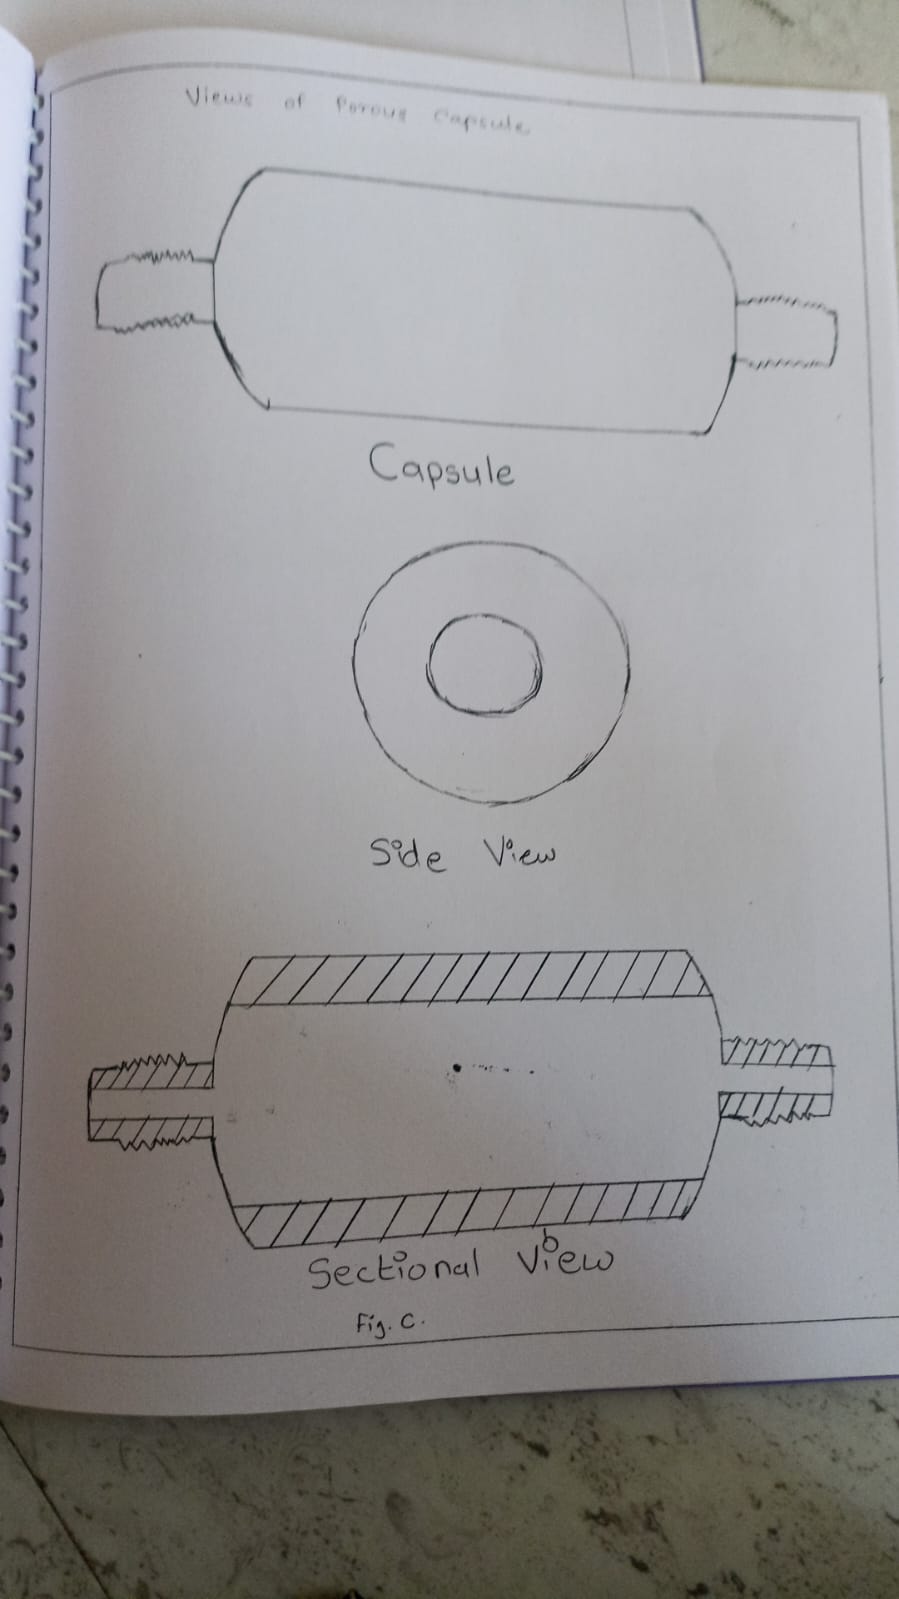 Views of Porous Capsule
Capsule
Side View
Sectional View
Fig. C.